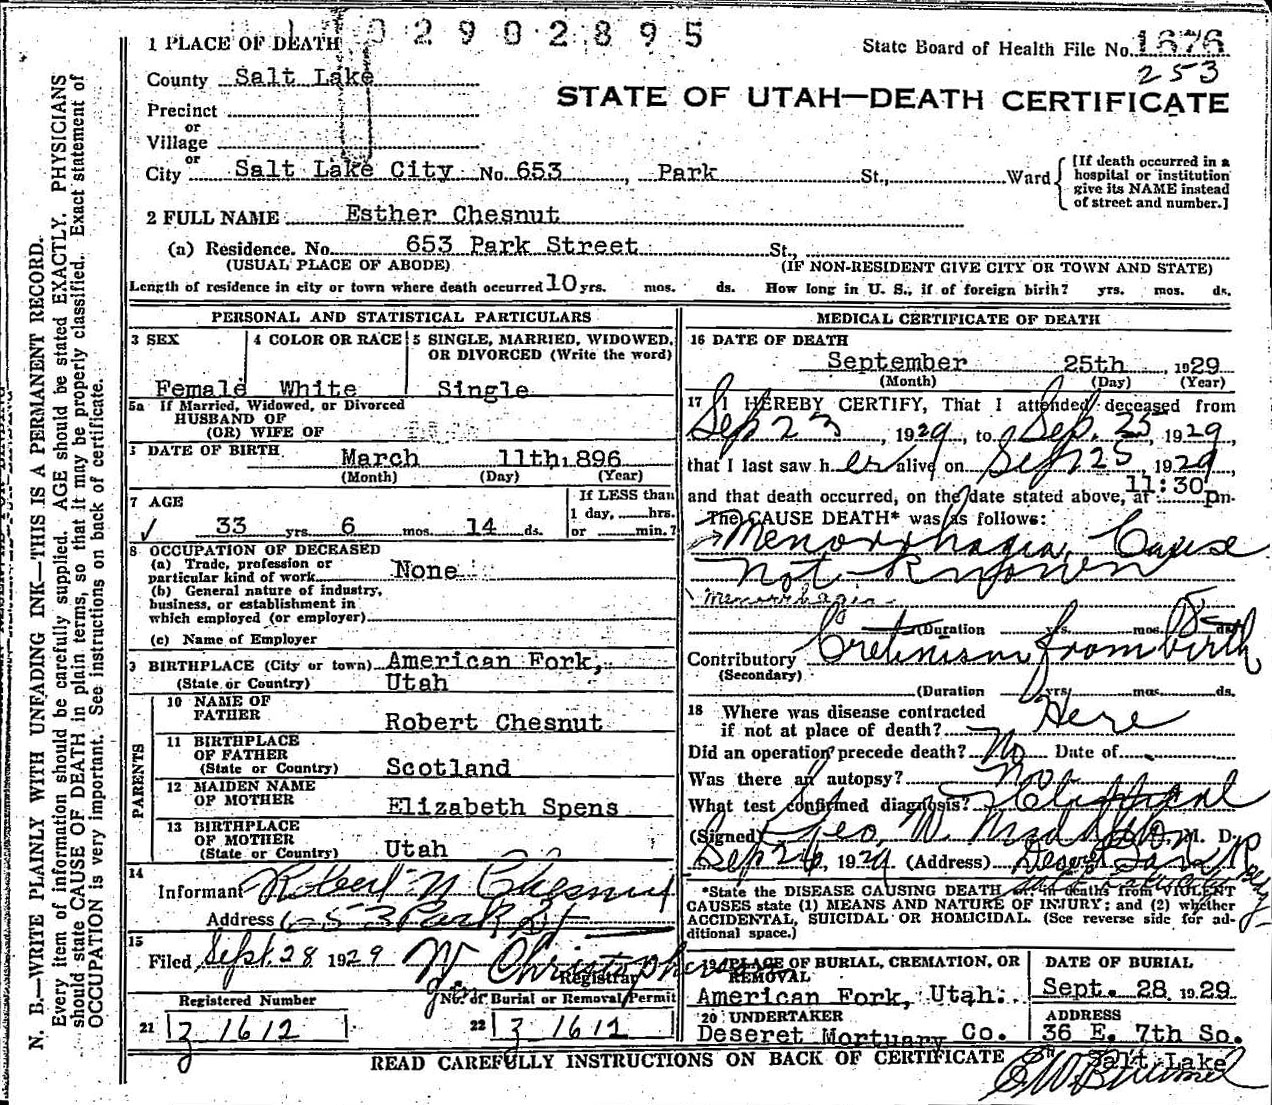 02902895
1 PLACE OF DEATH
State Board of Health File No. 1676
253
County Salt Lake
STATE OF UTAH—DEATH CERTIFICATE
Precinct
or
Village
or
City Salt Lake City No. 653, Park St., Ward
[If death occurred in a hospital or institution give its NAME instead of street and number.]
2 FULL NAME Esther Chesnut
(a) Residence. No. 653 Park Street St.,
(USUAL PLACE OF ABODE) (IF NON-RESIDENT GIVE CITY OR TOWN AND STATE)
Length of residence in city or town where death occurred 10 yrs. mos. ds. How long in U. S., if of foreign birth? yrs. mos. ds.
PERSONAL AND STATISTICAL PARTICULARS
3 SEX
Female
4 COLOR OR RACE
White
5 SINGLE, MARRIED, WIDOWED, OR DIVORCED (Write the word)
Single
5a If Married, Widowed, or Divorced
HUSBAND OF
(OR) WIFE OF
DATE OF BIRTH
March 11th, 1896
(Month) (Day) (Year)
7 AGE
33 yrs. 6 mos. 14 ds.
If LESS than
1 day, hrs.
or min.?
8 OCCUPATION OF DECEASED
(a) Trade, profession or
particular kind of work None
(b) General nature of industry,
business, or establishment in
which employed (or employer)
(c) Name of Employer
9 BIRTHPLACE (City or town) American Fork,
(State or Country) Utah
PARENTS
10 NAME OF
FATHER Robert Chesnut
11 BIRTHPLACE
OF FATHER
(State or Country) Scotland
12 MAIDEN NAME
OF MOTHER Elizabeth Spens
13 BIRTHPLACE
OF MOTHER
(State or Country) Utah
14
Informant Robert N Chesnut
Address 653 Park St
15
Filed Sept. 28 1929 W Christopherson
Registrar
Registered Number
21 1612
No. of Burial or Removal Permit
22 1612
MEDICAL CERTIFICATE OF DEATH
16 DATE OF DEATH
September 25th, 1929
(Month) (Day) (Year)
17 I HEREBY CERTIFY, That I attended deceased from
Sep 23, 1929, to Sep. 25, 1929,
that I last saw her alive on Sep 25, 1929,
and that death occurred, on the date stated above, at 11:30 pm.
The CAUSE DEATH* was as follows:
Menorrhagia, Cause
not known
Menorrhagia
(Duration yrs. mos. 15 ds.
Contributory Cretinism from birth
(Secondary)
(Duration yrs. mos. ds.
18 Where was disease contracted
if not at place of death? Here
Did an operation precede death? No Date of
Was there an autopsy? No
What test confirmed diagnosis? Clinical
(Signed) Geo. W. Middleton, M. D.
Sep 26, 1929 (Address) Deseret Bank Bldg
*State the DISEASE CAUSING DEATH, or in deaths from VIOLENT
CAUSES state (1) MEANS AND NATURE OF INJURY; and (2) whether
ACCIDENTAL, SUICIDAL OR HOMICIDAL. (See reverse side for ad-
ditional space.)
19 PLACE OF BURIAL, CREMATION, OR
REMOVAL
American Fork, Utah.
DATE OF BURIAL
Sept. 28 1929
20 UNDERTAKER
Deseret Mortuary Co.
ADDRESS
36 E. 7th So.
Salt Lake
READ CAREFULLY INSTRUCTIONS ON BACK OF CERTIFICATE
N. B.—WRITE PLAINLY WITH UNFADING INK—THIS IS A PERMANENT RECORD.
Every item of information should be carefully supplied. AGE should be stated EXACTLY. PHYSICIANS
should state CAUSE OF DEATH in plain terms, so that it may be properly classified. Exact statement of
OCCUPATION is very important. See instructions on back of certificate.